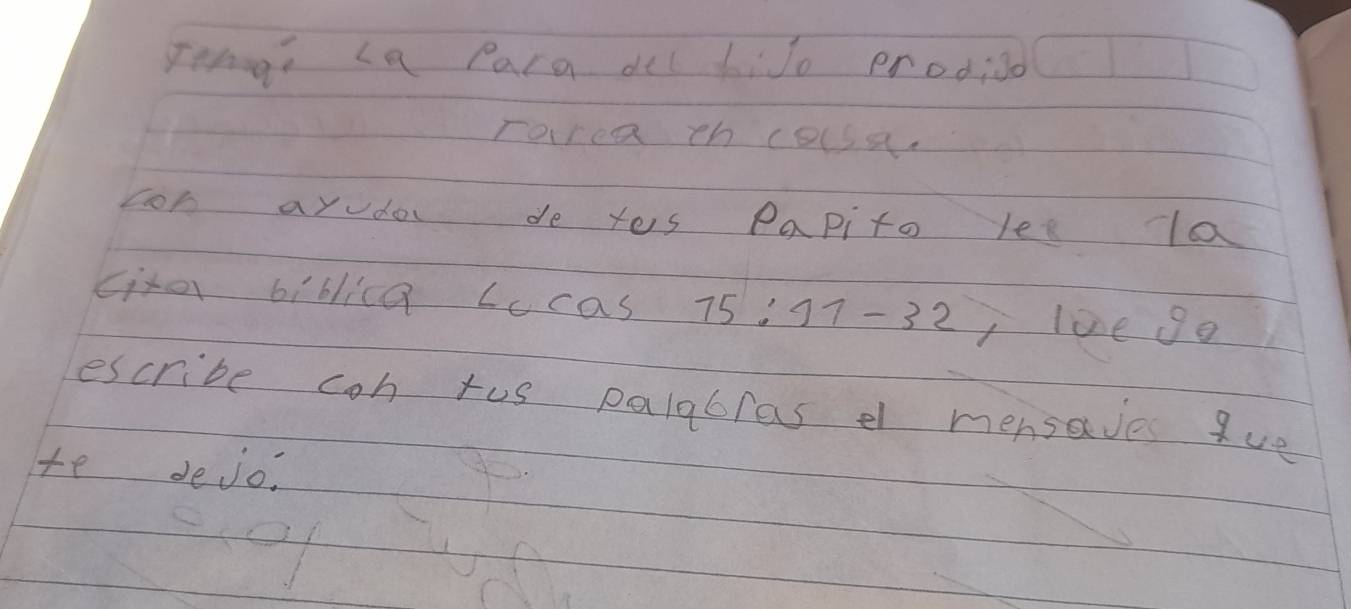 Tema: La Para del hijo prodijo
Tarea en casa.
con ayuda de tus Papito lee la
cita biblica Lucas 15:11-32, luego
escribe con tus palabras el mensajes que
te dejó.